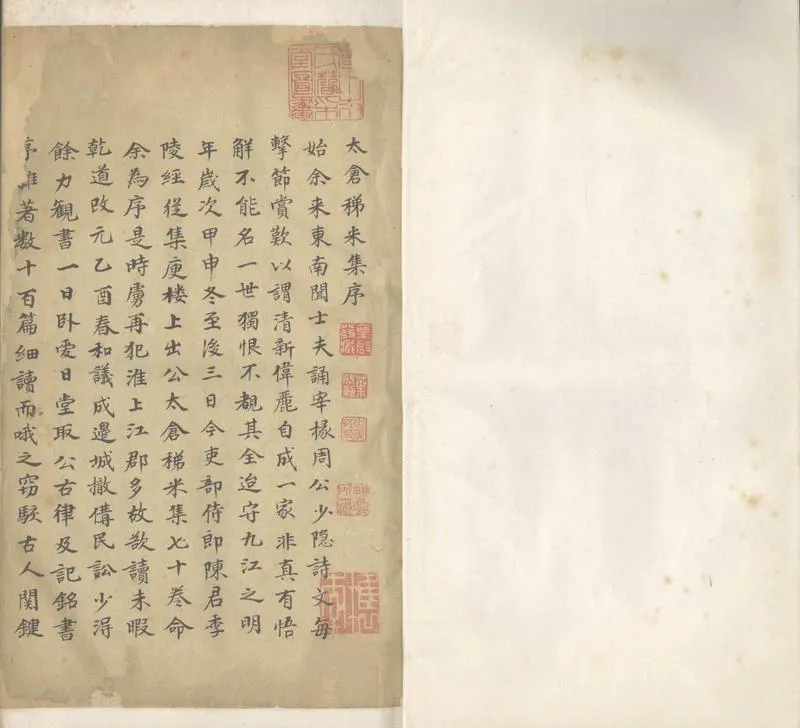 太倉稊米集序
始余来東南聞士夫誦宰掾周公少隐詩文每
擊節賞歎以謂清新偉麗自成一家非真有悟
解不能名一世獨恨不覩其全迨守九江之明
年歲次甲申冬至後三日今吏部侍郎陳君季
陵經從集庾楼上出公太倉稊米集七十卷命
余為序是時虜再犯淮上江郡多故欲讀未暇
乾道改元乙酉春和議成邊城撤俻民訟少淂
餘力觀書一日卧愛日堂取公古律及記銘書
序雜著数十百篇细讀而哦之窃駭古人関鍵